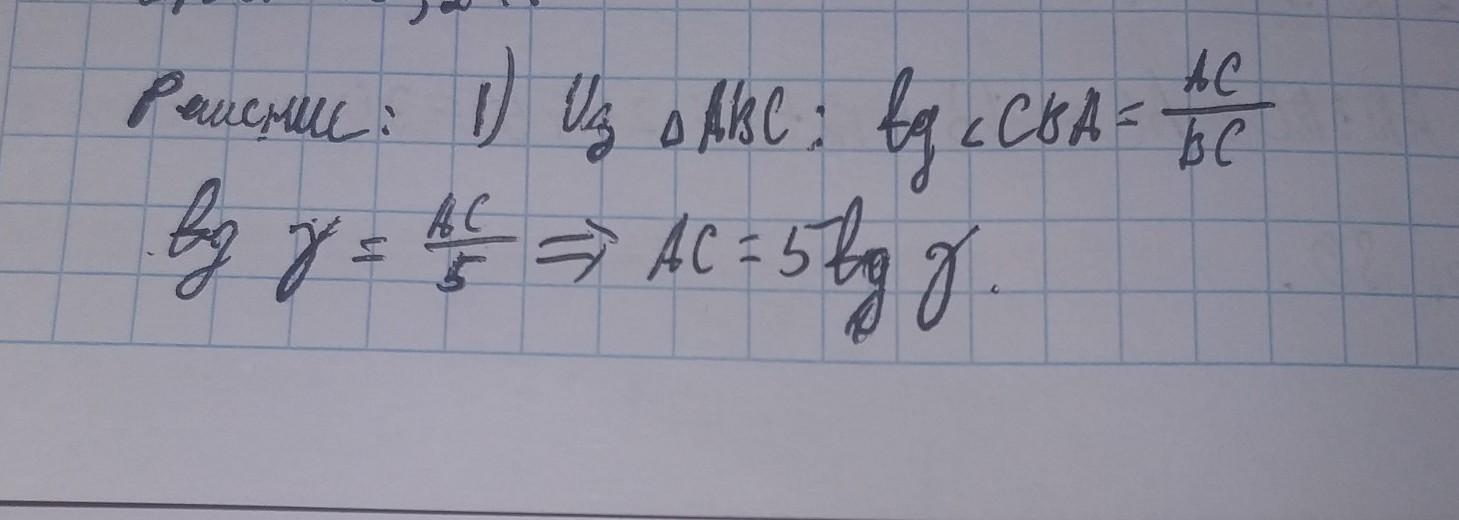 Решение: 1) Из ΔABC: tg∠CBA = AC/BC
tg γ = AC/5 ⇒ AC = 5 tg γ.